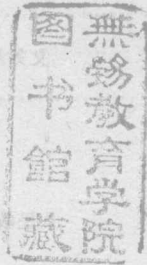 無锡教育学院
图书館藏